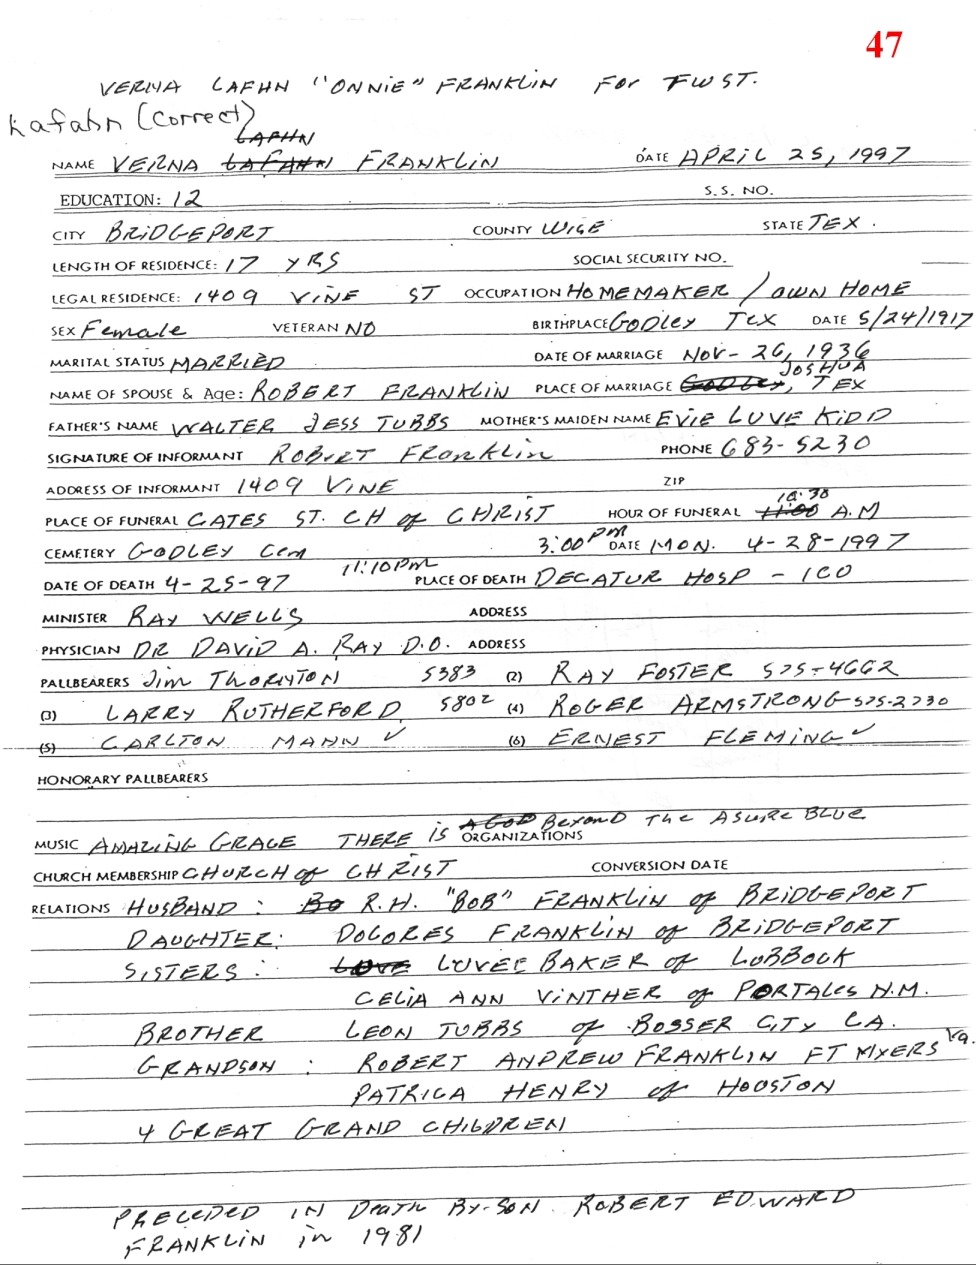 47
VERNA LAFHN "ONNIE" FRANKLIN FOR FWST.
Lafahn (Correct)
LAFHN
NAME VERNA LAFAHN FRANKLIN DATE APRIL 25, 1997
EDUCATION: 12 S.S. NO.
CITY BRIDGEPORT COUNTY WISE STATE TEX.
LENGTH OF RESIDENCE: 17 YRS SOCIAL SECURITY NO.
LEGAL RESIDENCE: 1409 VINE ST OCCUPATION HOMEMAKER / OWN HOME
SEX Female VETERAN NO BIRTHPLACE GODLEY TEX DATE 5/24/1917
MARITAL STATUS MARRIED DATE OF MARRIAGE NOV- 26, 1936
JOSHUA
NAME OF SPOUSE & Age: ROBERT FRANKLIN PLACE OF MARRIAGE GODLEY, TEX
FATHER'S NAME WALTER JESS TUBBS MOTHER'S MAIDEN NAME EVIE LUVE KIDD
SIGNATURE OF INFORMANT ROBERT FRANKLIN PHONE 683-5230
ADDRESS OF INFORMANT 1409 VINE ZIP
10:30
PLACE OF FUNERAL GATES ST. CH of CHRIST HOUR OF FUNERAL 11:00 A.M
CEMETERY GODLEY Cem 3:00 PM DATE MON. 4-28-1997
DATE OF DEATH 4-25-97 11:10 PM PLACE OF DEATH DECATUR HOSP - ICU
MINISTER RAY WELLS ADDRESS
PHYSICIAN DR DAVID A. RAY D.O. ADDRESS
PALLBEARERS Jim THORNTON 5383 (2) RAY FOSTER 575-4662
(3) LARRY RUTHERFORD 5802 (4) ROGER ARMSTRONG-575-2230
(5) CARLTON MANN ✓ (6) ERNEST FLEMING ✓
HONORARY PALLBEARERS
MUSIC AMAZING GRACE THERE IS A GOD BEYOND THE ASURE BLUE
ORGANIZATIONS
CHURCH MEMBERSHIP CHURCH of CHRIST CONVERSION DATE
RELATIONS HUSBAND: BO R.H. "BOB" FRANKLIN of BRIDGEPORT
DAUGHTER: DOLORES FRANKLIN of BRIDGEPORT
SISTERS: LOVE LUVEE BAKER of LUBBOCK
CELIA ANN VINTHER of PORTALES N.M.
BROTHER LEON TUBBS of BOSSER CITY LA.
GRANDSON: ROBERT ANDREW FRANKLIN FT MYERS Va.
PATRICA HENRY of HOUSTON
4 GREAT GRAND CHILDREN
PRECEDED IN Death By-SON ROBERT EDWARD
FRANKLIN in 1981